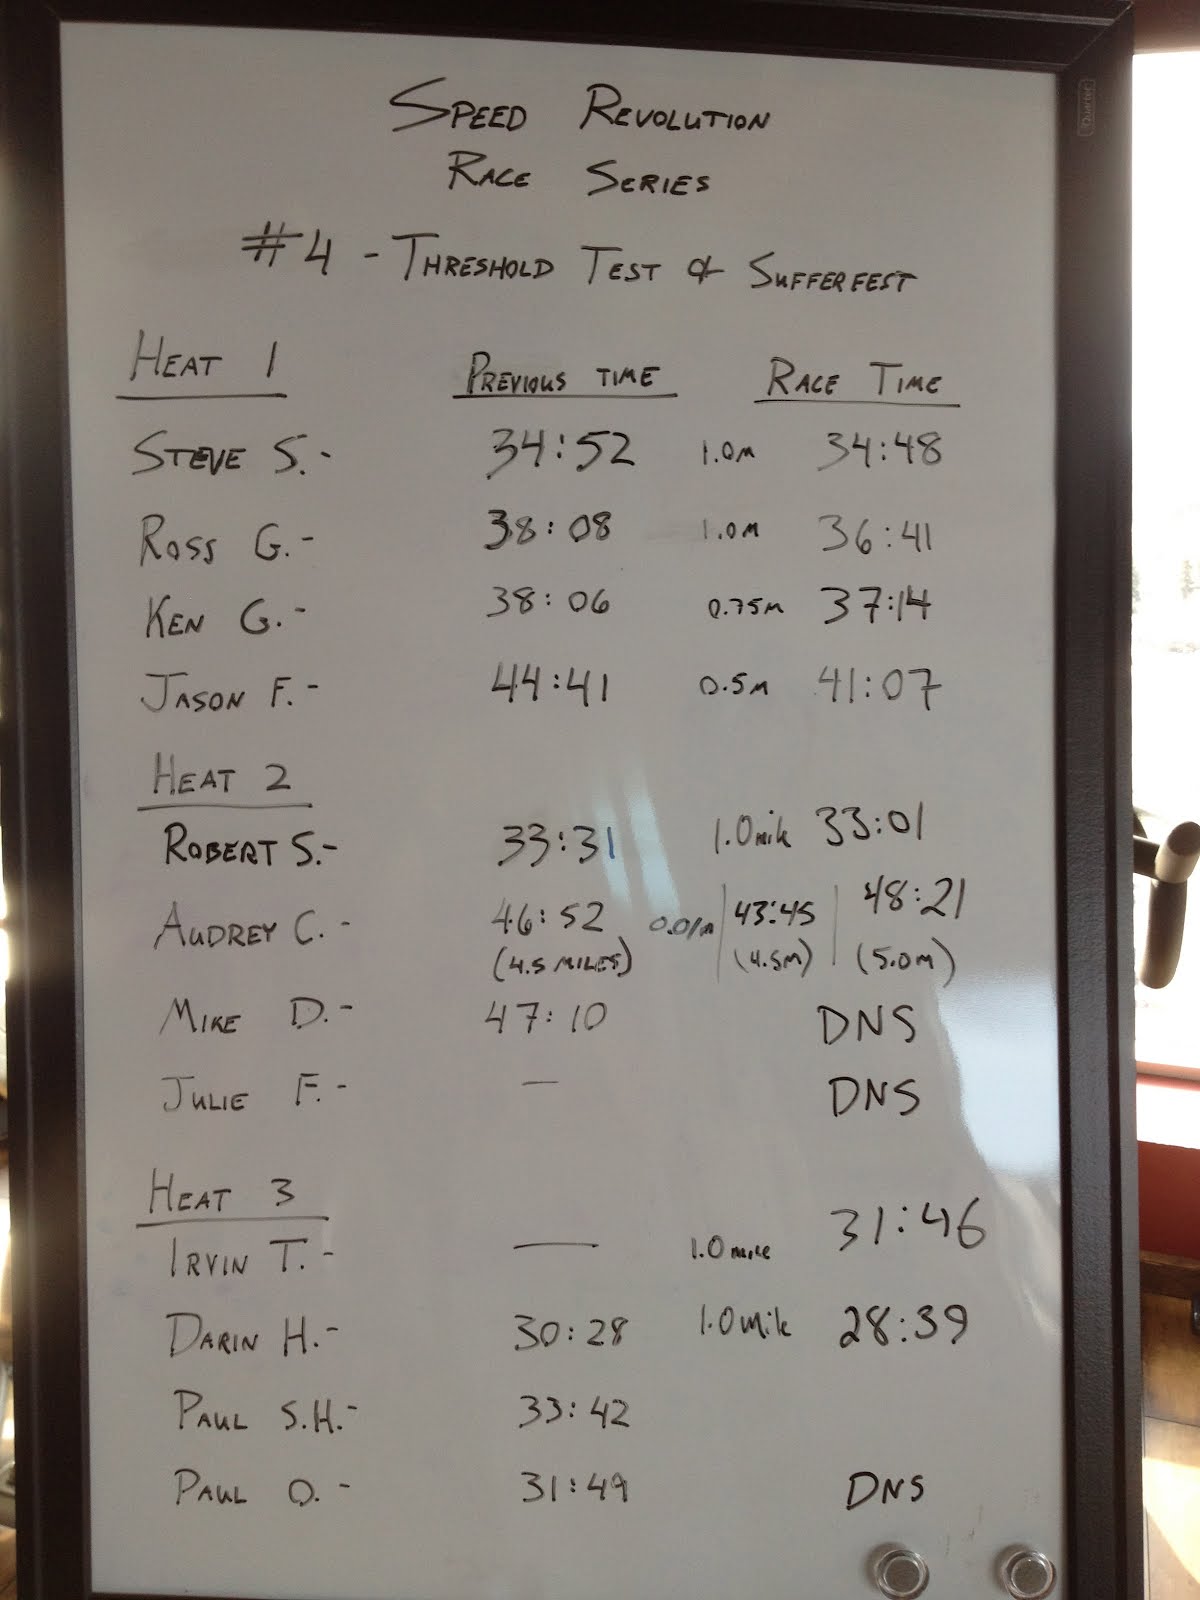 SPEED REVOLUTION
RACE SERIES
#4 - THRESHOLD TEST & SUFFERFEST
HEAT 1 PREVIOUS TIME RACE TIME
STEVE S.- 34:52 1.0M 34:48
ROSS G.- 38:08 1.0M 36:41
KEN G.- 38:06 0.75M 37:14
JASON F.- 44:41 0.5M 41:07
HEAT 2
ROBERT S.- 33:31 1.0mile 33:01
AUDREY C.- 46:52 0.01m 43:45 48:21
(4.5 MILES) (4.5M) (5.0M)
MIKE D.- 47:10 DNS
JULIE F.- — DNS
HEAT 3
IRVIN T.- — 1.0 mile 31:46
DARIN H.- 30:28 1.0 mile 28:39
PAUL S.H.- 33:42
PAUL O.- 31:49 DNS
Quartet